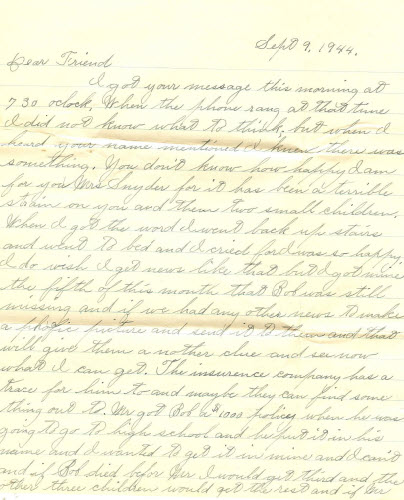 Sept 9, 1944.
Dear Friend
I got your message this morning at
7 30 oclock, When the phone rang at that time
I did not know what to think, but when I
heard your name mentioned I knew there was
something. You don't know how happy I am
for you Mrs Snyder for it has been a terrible
straine on you and them two small children.
When I got the word I went back up stairs
and went to bed and I cried for I was so happy.
I do wish I get news like that but I got mine
the fifth of this month that Bob was still
missing and if we had any other news to make
a photic picture and send it to them and that
will give them a nother clue and see now
what I can get. The insurence company has a
trace for him to and maybe they can find some
thing out to. Mr got Bob a $1000 policy when he was
going to go to high school and he put it in his
name and I wanted to get it in mine and I can't
and if Bob died befor Mr I would get third and the
other three children would get the rest and if Mr